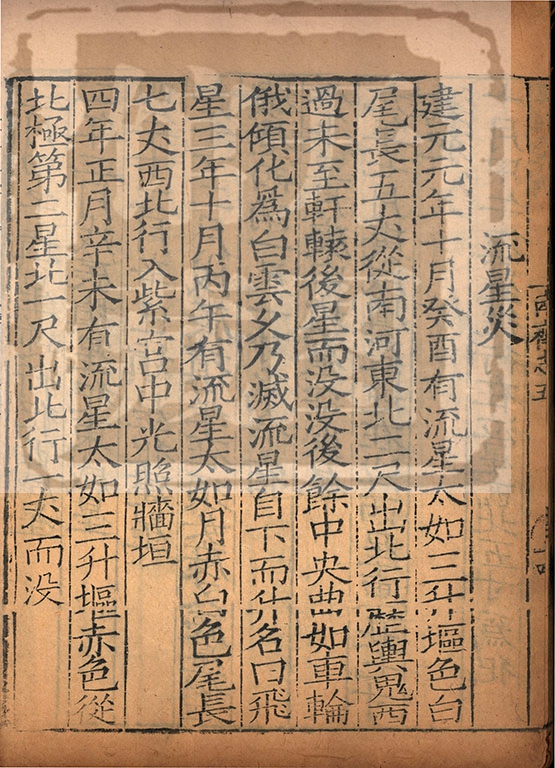 南齊志五
流星災
建元元年十月癸酉有流星太如三升塸色白
尾長五丈從南河東北二尺出北行歷輿鬼西
過未至軒轅後星而没没後餘中央曲如車輪
俄傾化爲白雲久乃滅流星自下而升名曰飛
星三年十月丙午有流星太如月赤白色尾長
七丈西北行入紫宮中光照牆垣
四年正月辛未有流星太如三升塸赤色從
北極第二星北一尺出北行一丈而没